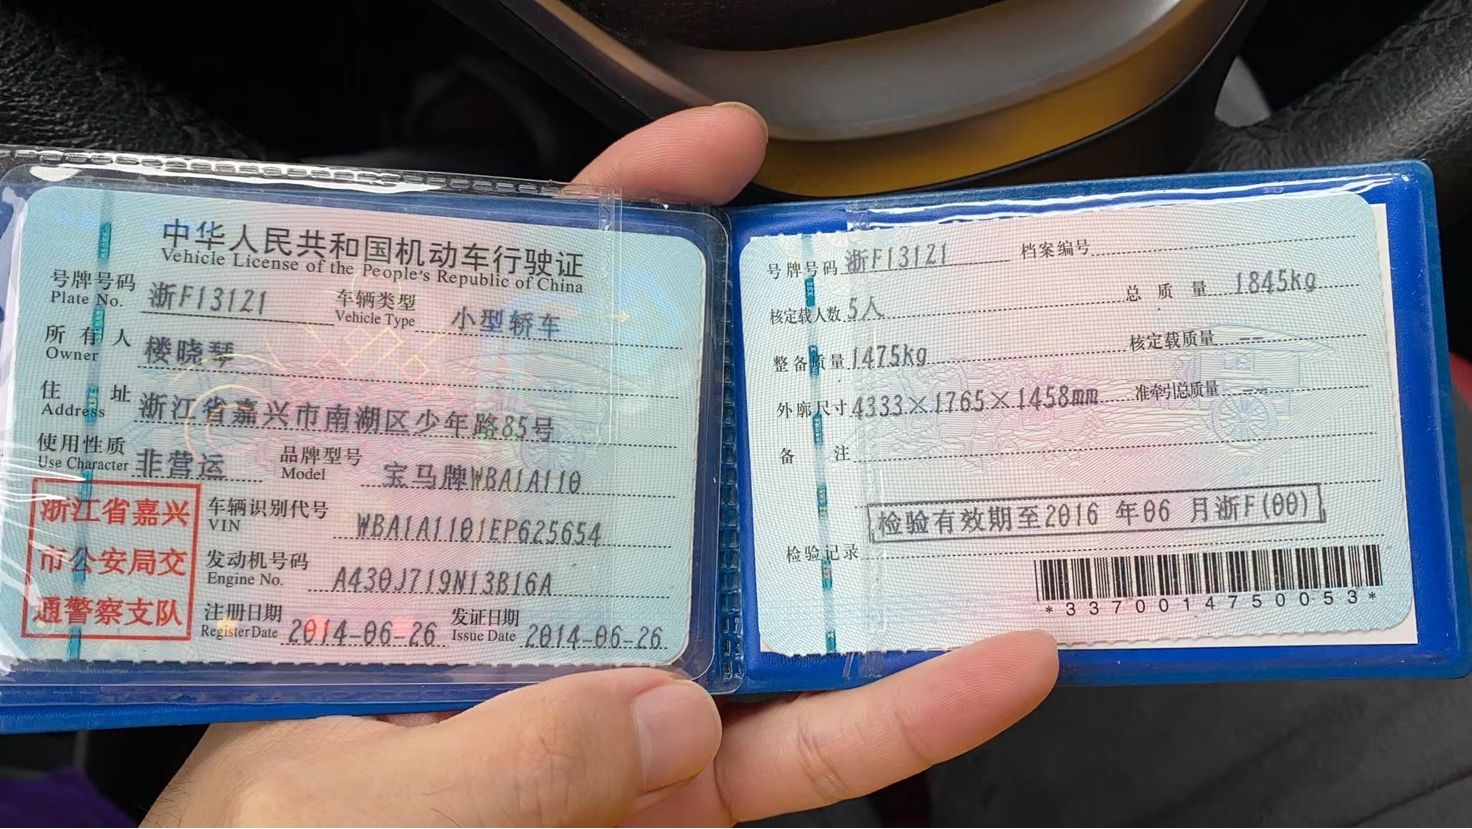 中华人民共和国机动车行驶证
Vehicle License of the People's Republic of China
号牌号码 浙F13121 车辆类型 小型轿车
Plate No. Vehicle Type
所有人 楼晓琴
Owner
住址 浙江省嘉兴市南湖区少年路85号
Address
使用性质 非营运 品牌型号 宝马牌WBA1A110
Use Character Model
浙江省嘉兴
市公安局交
通警察支队
车辆识别代号 WBA1A1101EP625654
VIN
发动机号码 A430J719N13B16A
Engine No.
注册日期 2014-06-26 发证日期 2014-06-26
Register Date Issue Date
号牌号码 浙F13121 档案编号
核定载人数 5人 总质量 1845kg
整备质量 1475kg 核定载质量 --
外廓尺寸 4333×1765×1458mm 准牵引总质量 --
备注
检验有效期至2016 年06 月浙F(00)
检验记录
*3370014750053*